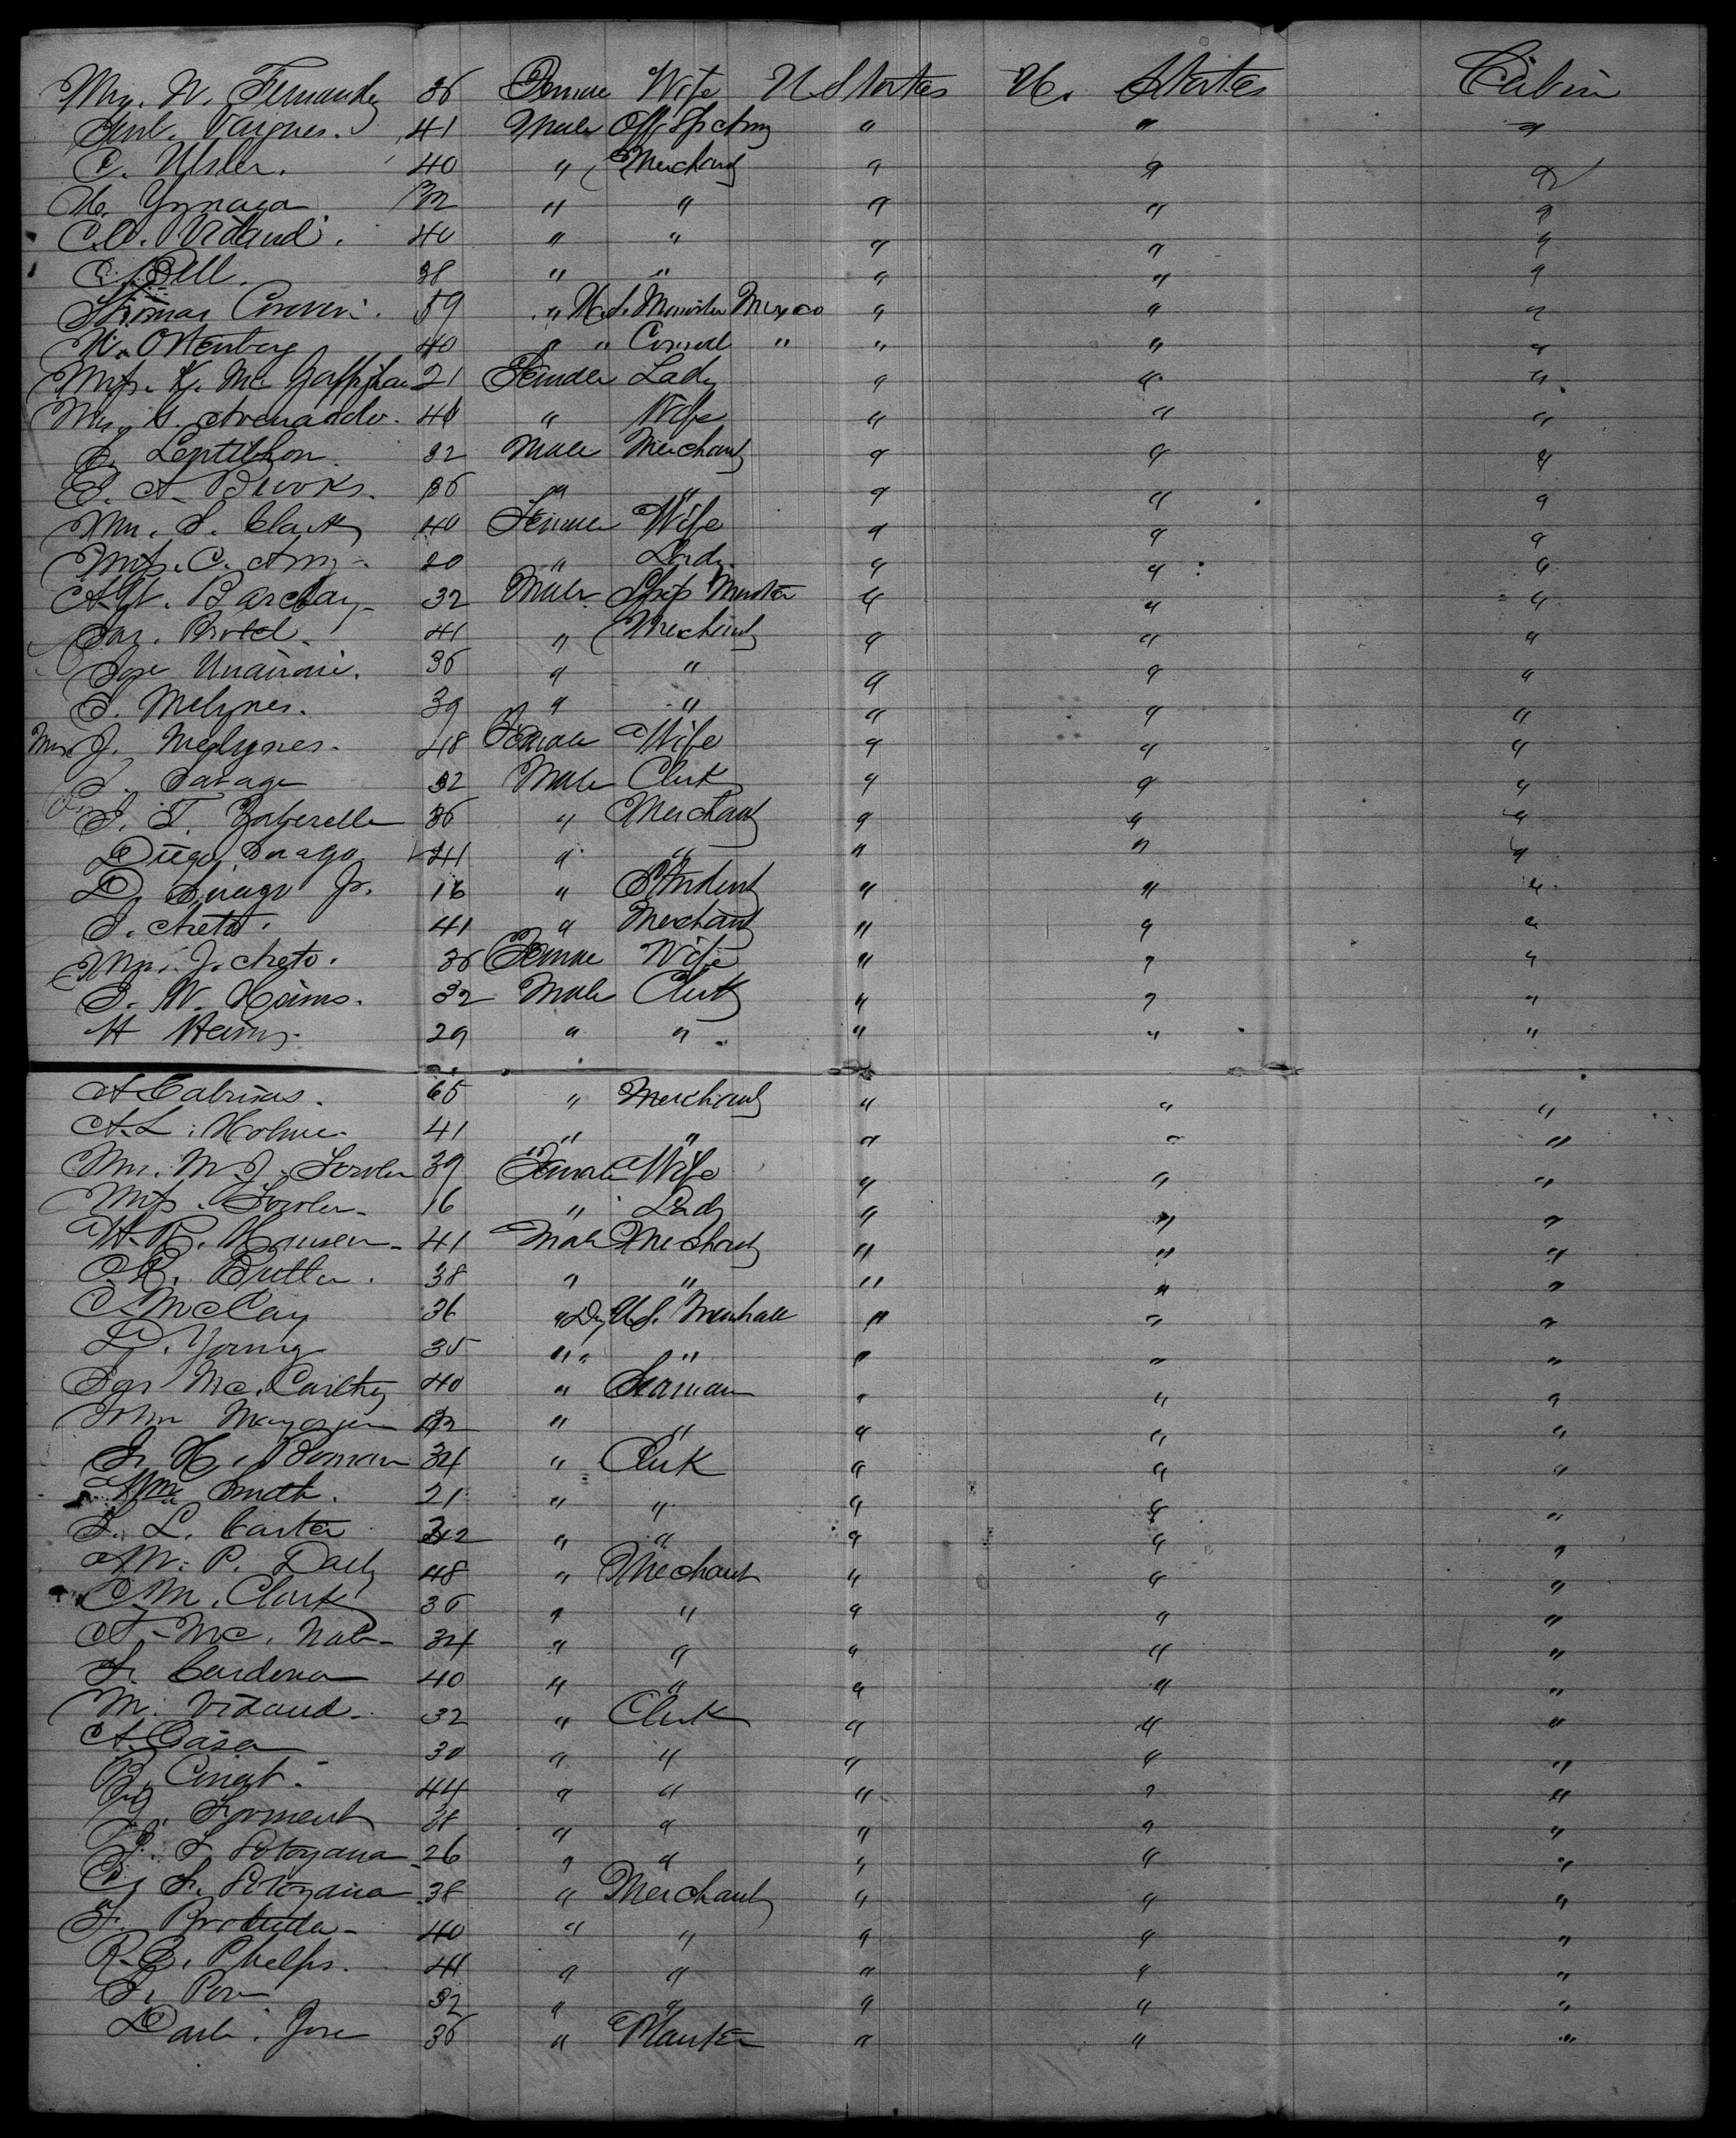 Mrs. N. Fernandez 36 Female Wife U States U. States Cabin
Vargues. 41 Male Off. Sp Army " " "
C. Usler. 40 " Merchant " " "
Ynnaga 32 " " " " "
C.A. Vidaud. 40 " " " " "
C. Bell. 38 " " " " "
Thomas Corwin. 59 " U.S. Minister Mexico " " "
M. Ottenburg 40 " " Consul " " " "
Miss. K. Mc Gaffighan 21 Female Lady " " "
Mrs. G. Avenando. 40 " Wife " " "
Lentilhon 32 Male Merchant " " "
E. A. Brooks. 36 " " " " "
Mrs. S. Clark 40 Female Wife " " "
Miss. C. Amy. 20 " Lady " " "
A.H. Barclay 32 Male Ship Master " " "
Jas. Brotel. 41 " Merchant " " "
Jose 36 " " " " "
J. McLynes. 39 " " " " "
Mrs J. McLynes. 48 Female Wife " " "
J. Savage 32 Male Clerk " " "
J. T. 36 " Merchant " " "
Diego 41 " " " " "
D. Jr. 16 " Student " " "
J. Areto. 41 " Merchant " " "
Mrs. J. Areto. 36 Female Wife " " "
J. W. Heims. 32 Male Clerk " " "
H Heims. 29 " " " " "
A Cabrisas. 65 " Merchant " " "
A.L. Holme. 41 " " " " "
Mrs. M. J. Fowler 39 Female Wife " " "
Miss. Fowler. 16 " Lady " " "
H. R. Hansen. 41 Male Merchant " " "
C.R. Butler. 38 " " " " "
C McCay 36 " Dy U.S. Marshall " " "
D. Young 35 " " " " " "
Jas Mc. Carthy 40 " Seaman " " "
John 32 " " " " "
J. H. Boman 34 " Clerk " " "
Wm Smith. 21 " " " " "
J. L. Carter 32 " " " " "
M. P. Daely 48 " Merchant " " "
C M. Clark 36 " " " " "
A. Mc. Nab. 34 " " " " "
F. Cardona 40 " " " " "
M. Vidaud. 32 " Clerk " " "
A. Casa 30 " " " " "
B. 44 " " " " "
Forment 38 " " " " "
J. F. Potozana 26 " " " " "
C. F. Potozana 38 " Merchant " " "
F. 40 " " " " "
R.C. Phelps. 41 " " " " "
J. 32 " " " " "
Jose 36 " Planter " " "